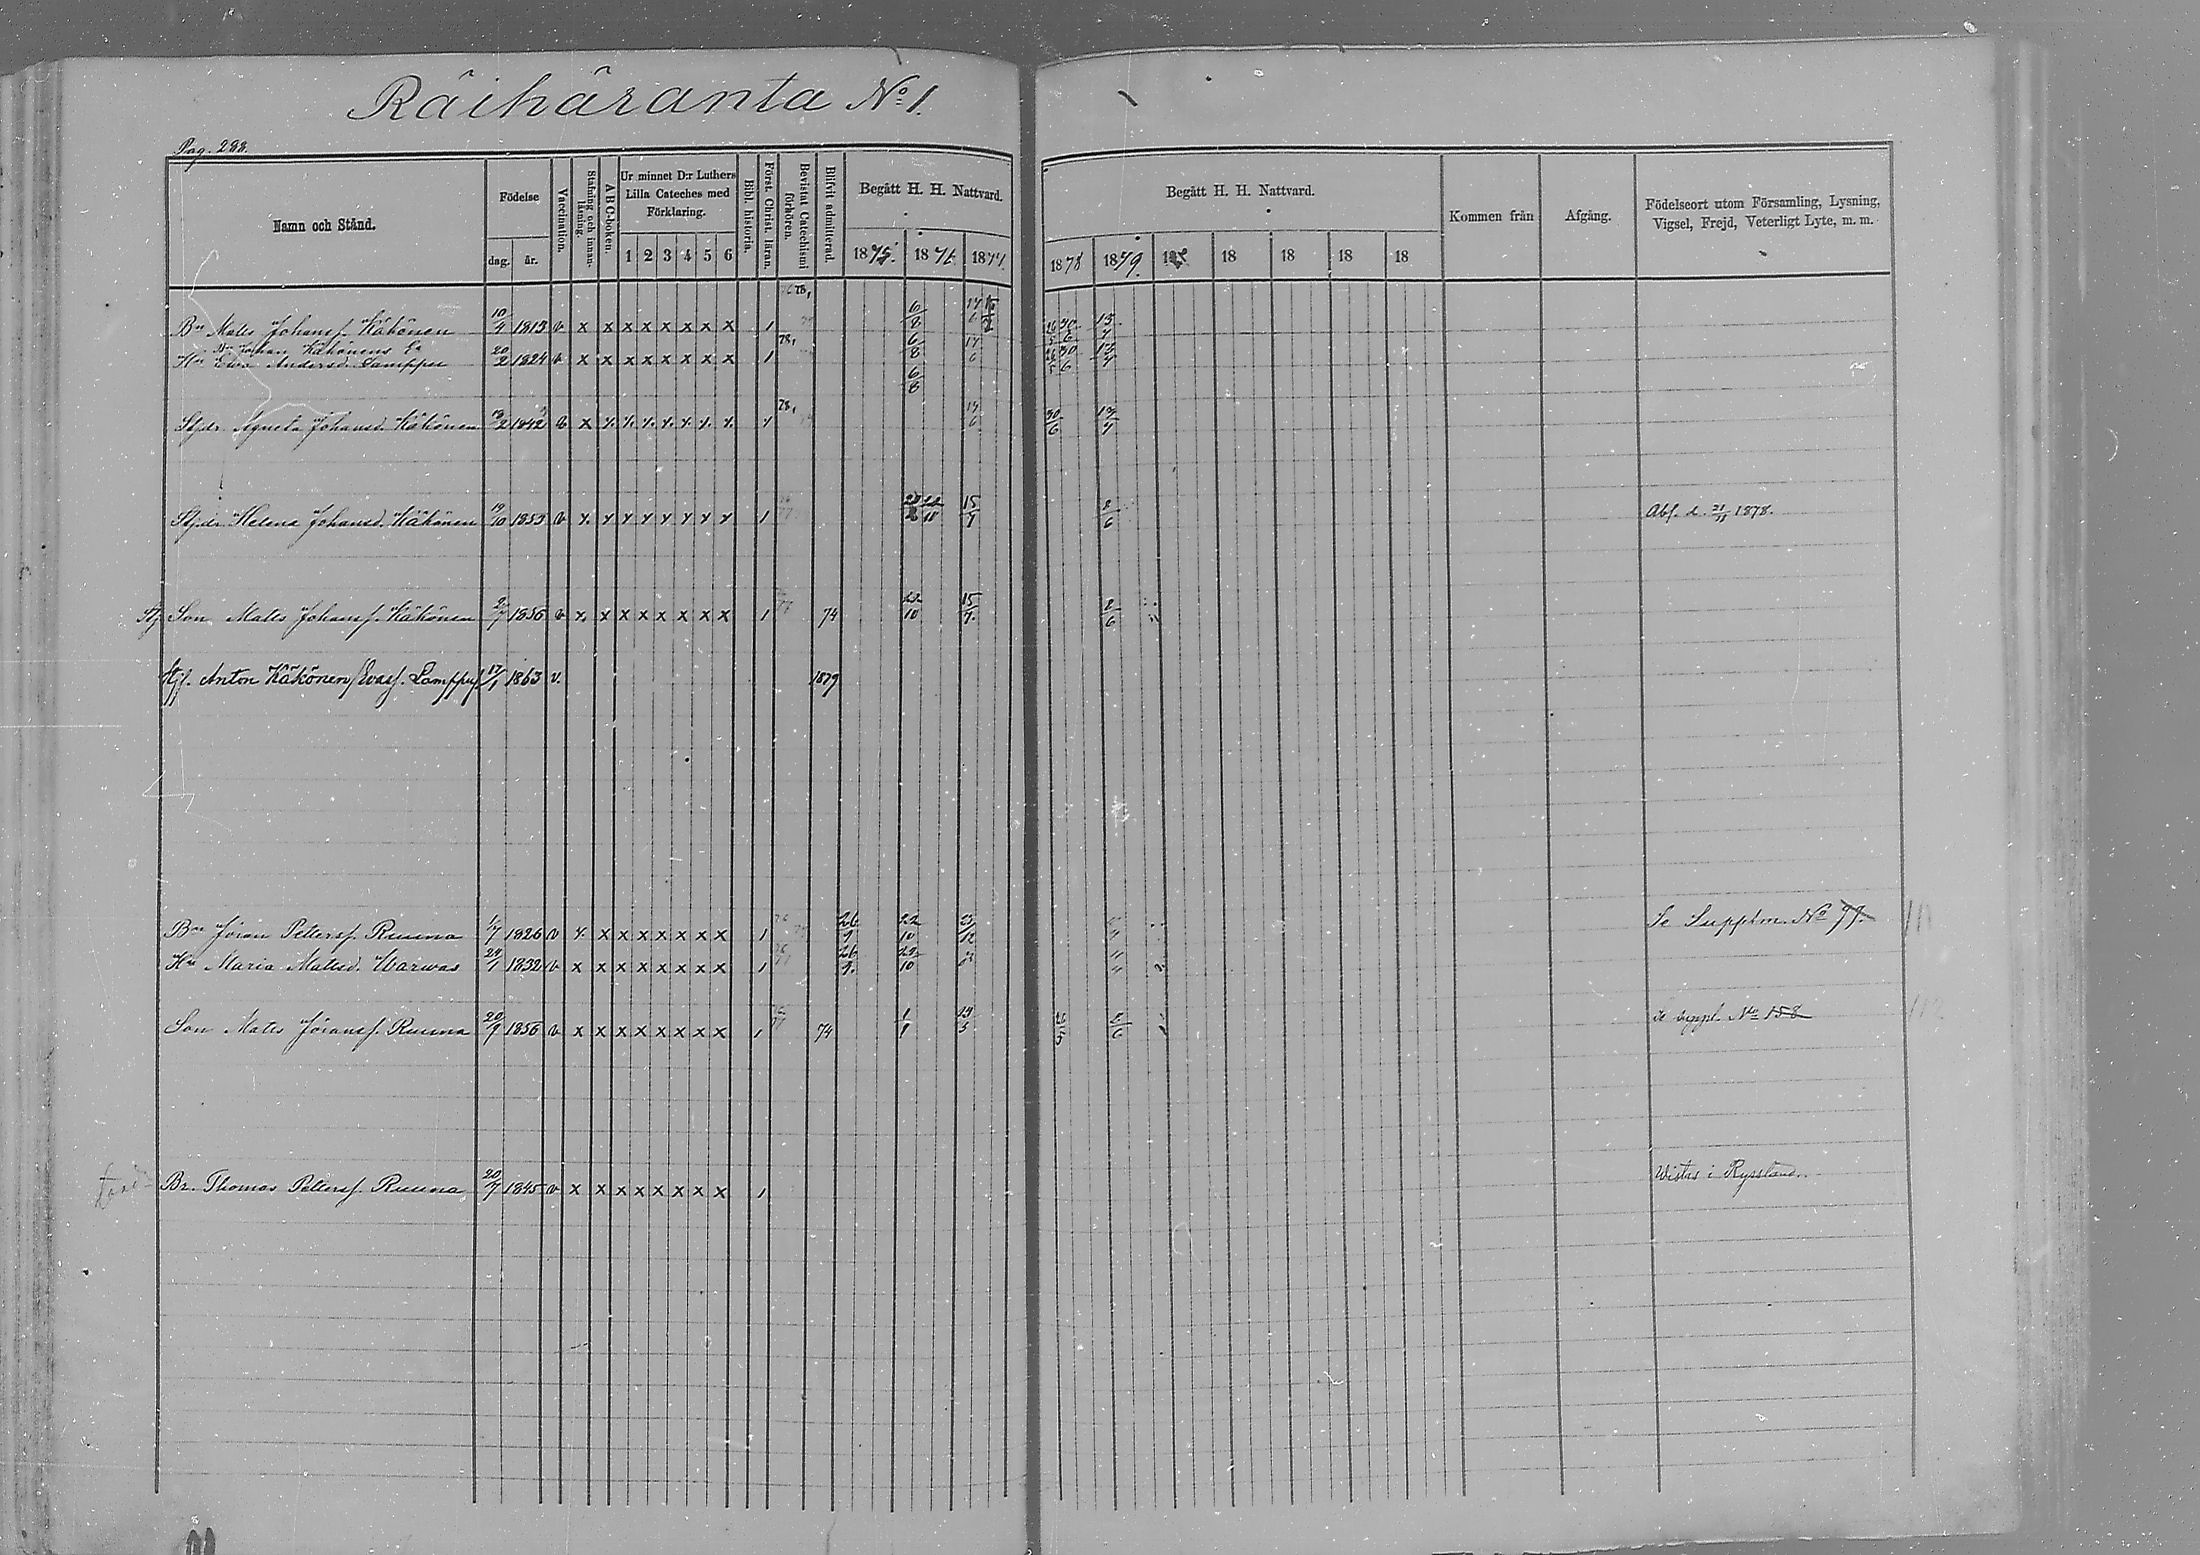 Räihäranta No 1.
Pag. 288.
Namn och Stånd.
Födelse
dag. år.
Vaccination.
Stafning och innanläsning.
A B C-boken.
Ur minnet D:r Luthers Lilla Cateches med Förklaring.
1 2 3 4 5 6
Bibl. historia.
Först. Christ. läran.
Bevistat Catechismi förhören.
Blifvit admitterad.
Begått H. H. Nattvard.
1875. 1876. 1877.
Begått H. H. Nattvard.
1878 1879. 18 18 18 18 18
Kommen från
Afgång.
Födelseort utom Församling, Lysning, Vigsel, Frejd, Veterligt Lyte, m. m.
Bn Mats Johansf. Kähönen 10/4 1813 v x x x x x x x x 1 6/8 14/6 26/5 30/6 15/7
Bn Johan Kähönens Ea
Hu Ewa Andersd. Lamppu 20/2 1824 v x x x x x x x x 1 78, 6/8 14/6 26/5 30/6 13/7
6/8
Stjdr. Agneta Johansd. Kähönen 1842 v x x x x x x x x 78, 30/6 13/7
Stjdr. Helena Johansd. Kähönen 19/10 1853 v x x x x x x x x 1 15/7 8/6 Abs. d. 21/11 1878.
Stj. Son Mats Johansf. Kähönen 1856 v x x x x x x x x 1 74 22/10 15/7 8/6
Stjs. Anton Kähönen/Evasf. Lamppu 17/1 1863 v. 1879
Bn Jöran Pettersf. Ruuna 1/7 1826 v x x x x x x x x 1 26/9 22/10 Se Supplm. No 77. 111
Hu Maria Matsd. Warwas 24/1 1832 v x x x x x x x x 1 26/9 22/10
Son Mats Jöransf. Ruuna 20/9 1856 v x x x x x x x x 1 74 1/1 8/6 Se suppl. No 158 112
Br. Thomas Pettersf. Ruuna 20/7 1845 v x x x x x x x x 1 Wistas i Ryssland.